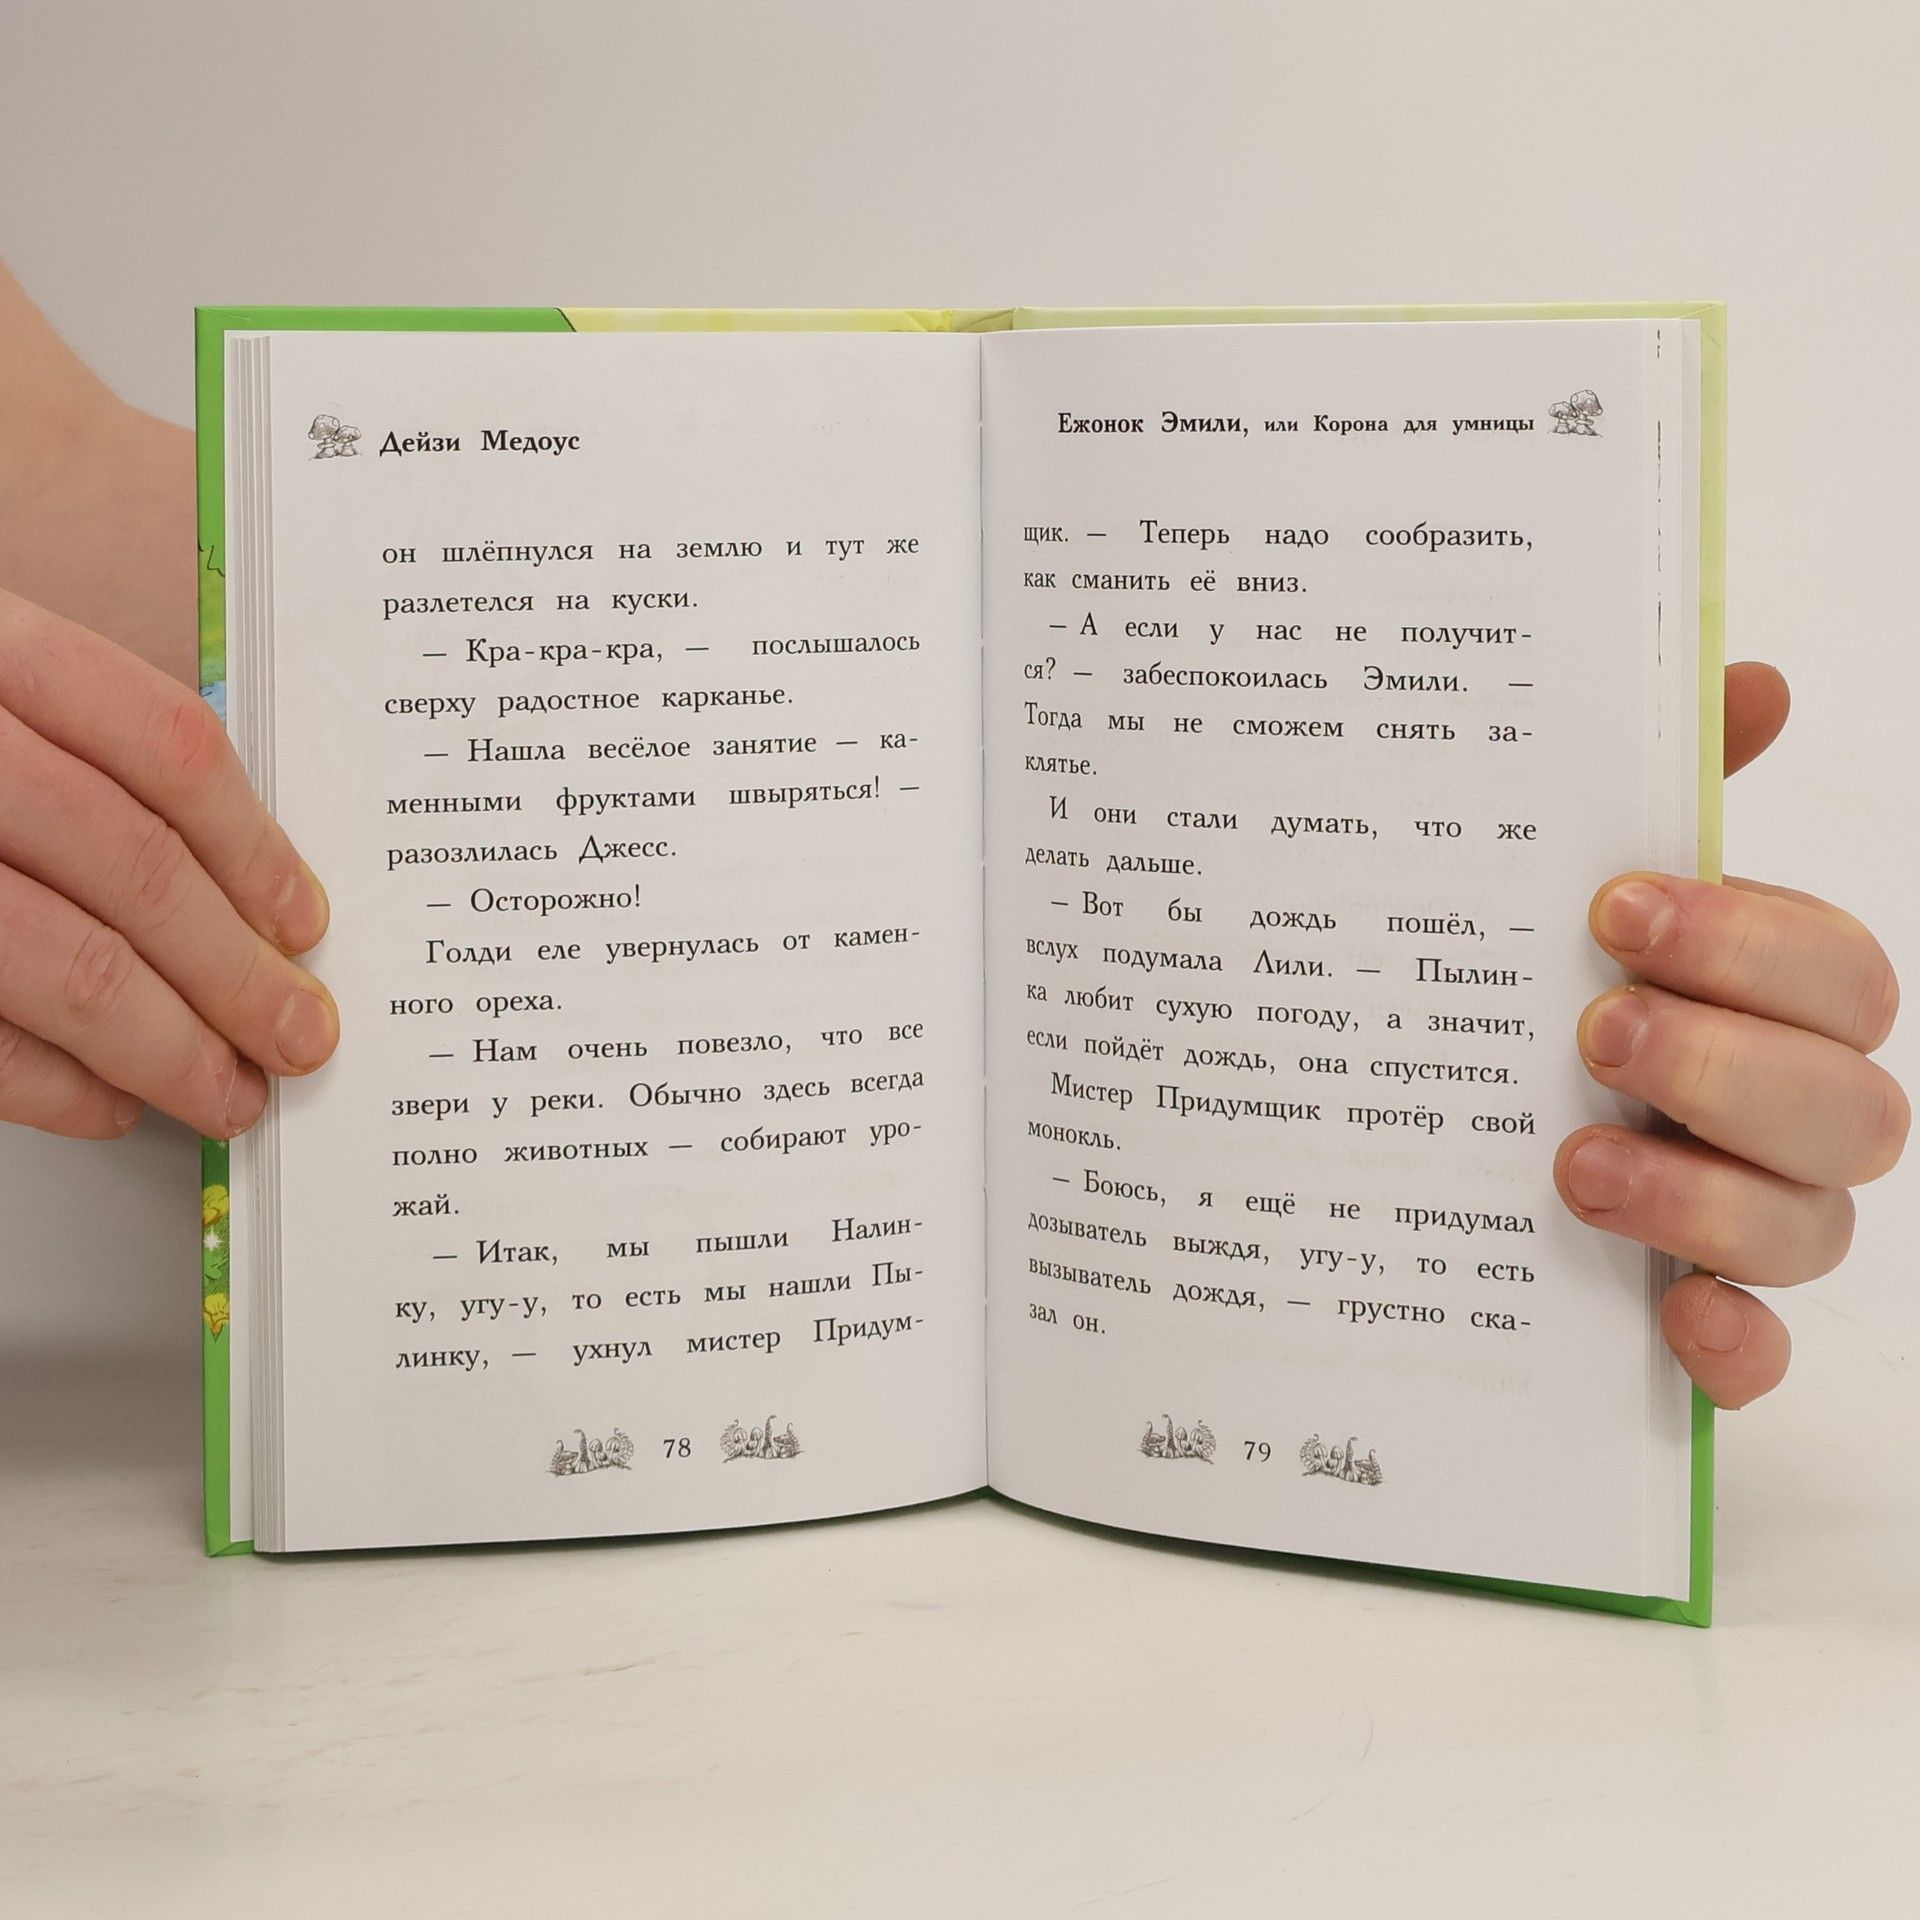 Дейзи Медоус
он шлёпнулся на землю и тут же
разлетелся на куски.
— Кра-кра-кра, — послышалось
сверху радостное карканье.
— Нашла весёлое занятие — ка-
менными фруктами швыряться! —
разозлилась Джесс.
— Осторожно!
Голди еле увернулась от камен-
ного ореха.
— Нам очень повезло, что все
звери у реки. Обычно здесь всегда
полно животных — собирают уро-
жай.
— Итак, мы пышли Налин-
ку, угу-у, то есть мы нашли Пы-
линку, — ухнул мистер Придум-
78
Ежонок Эмили, или Корона для умницы
щик. — Теперь надо сообразить,
как сманить её вниз.
— А если у нас не получит-
ся? — забеспокоилась Эмили. —
Тогда мы не сможем снять за-
клятье.
И они стали думать, что же
делать дальше.
— Вот бы дождь пошёл, —
вслух подумала Лили. — Пылин-
ка любит сухую погоду, а значит,
если пойдёт дождь, она спустится.
Мистер Придумщик протёр свой
монокль.
— Боюсь, я ещё не придумал
дозыватель выждя, угу-у, то есть
вызыватель дождя, — грустно ска-
зал он.
79